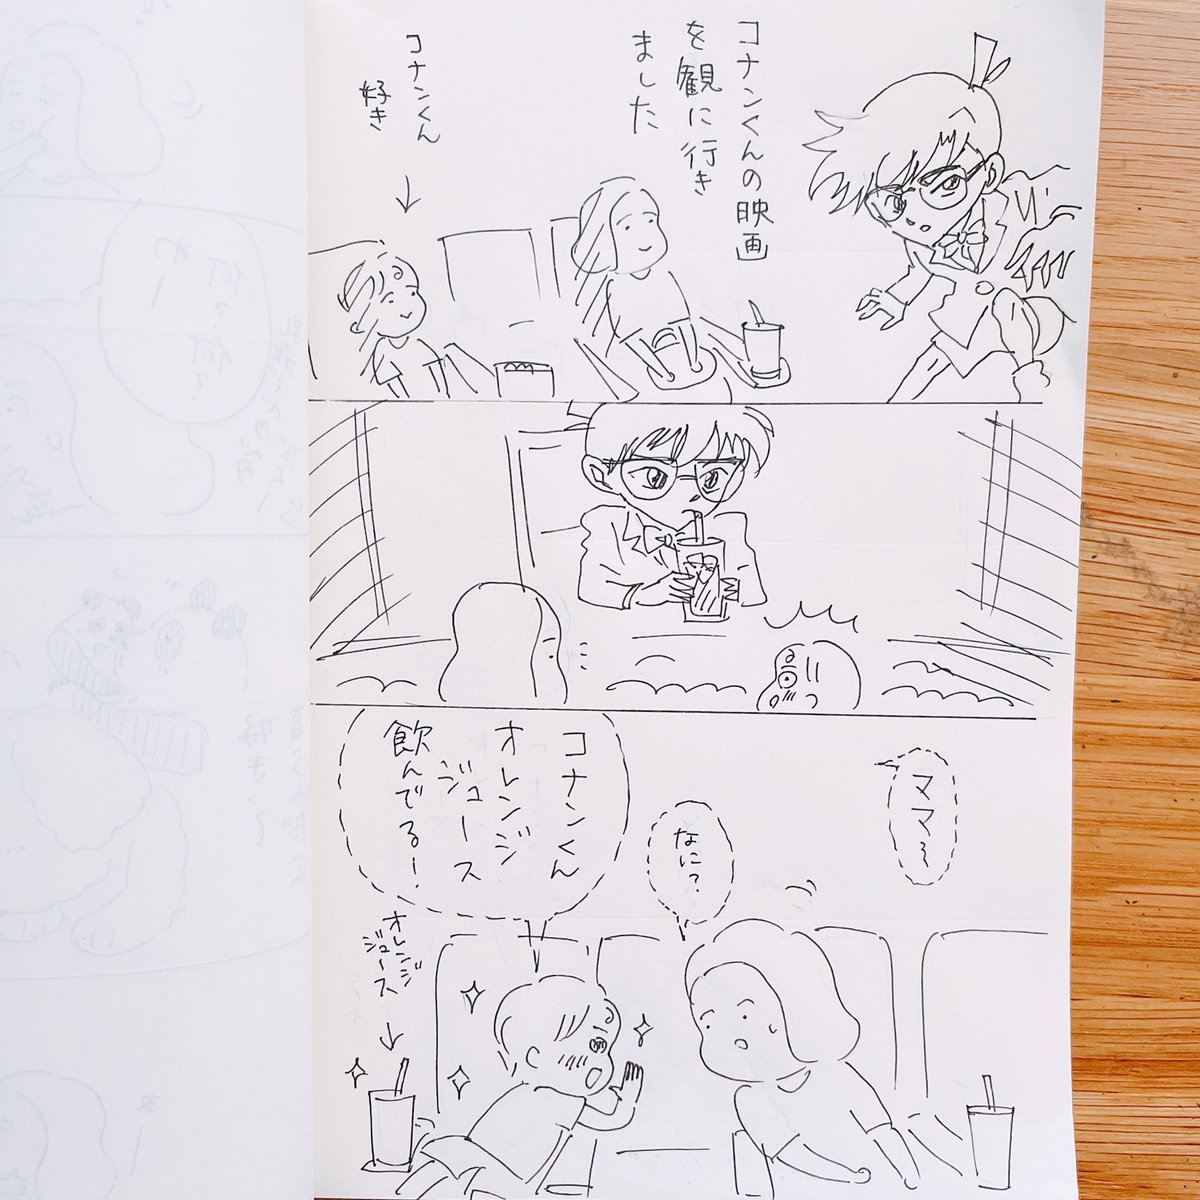 コナンくんの映画
を観に行き
ました
コナンくん
好き
ママ～
なに？
コナンくん
オレンジ
ジュース
飲んでる！
オレンジ
ジュース